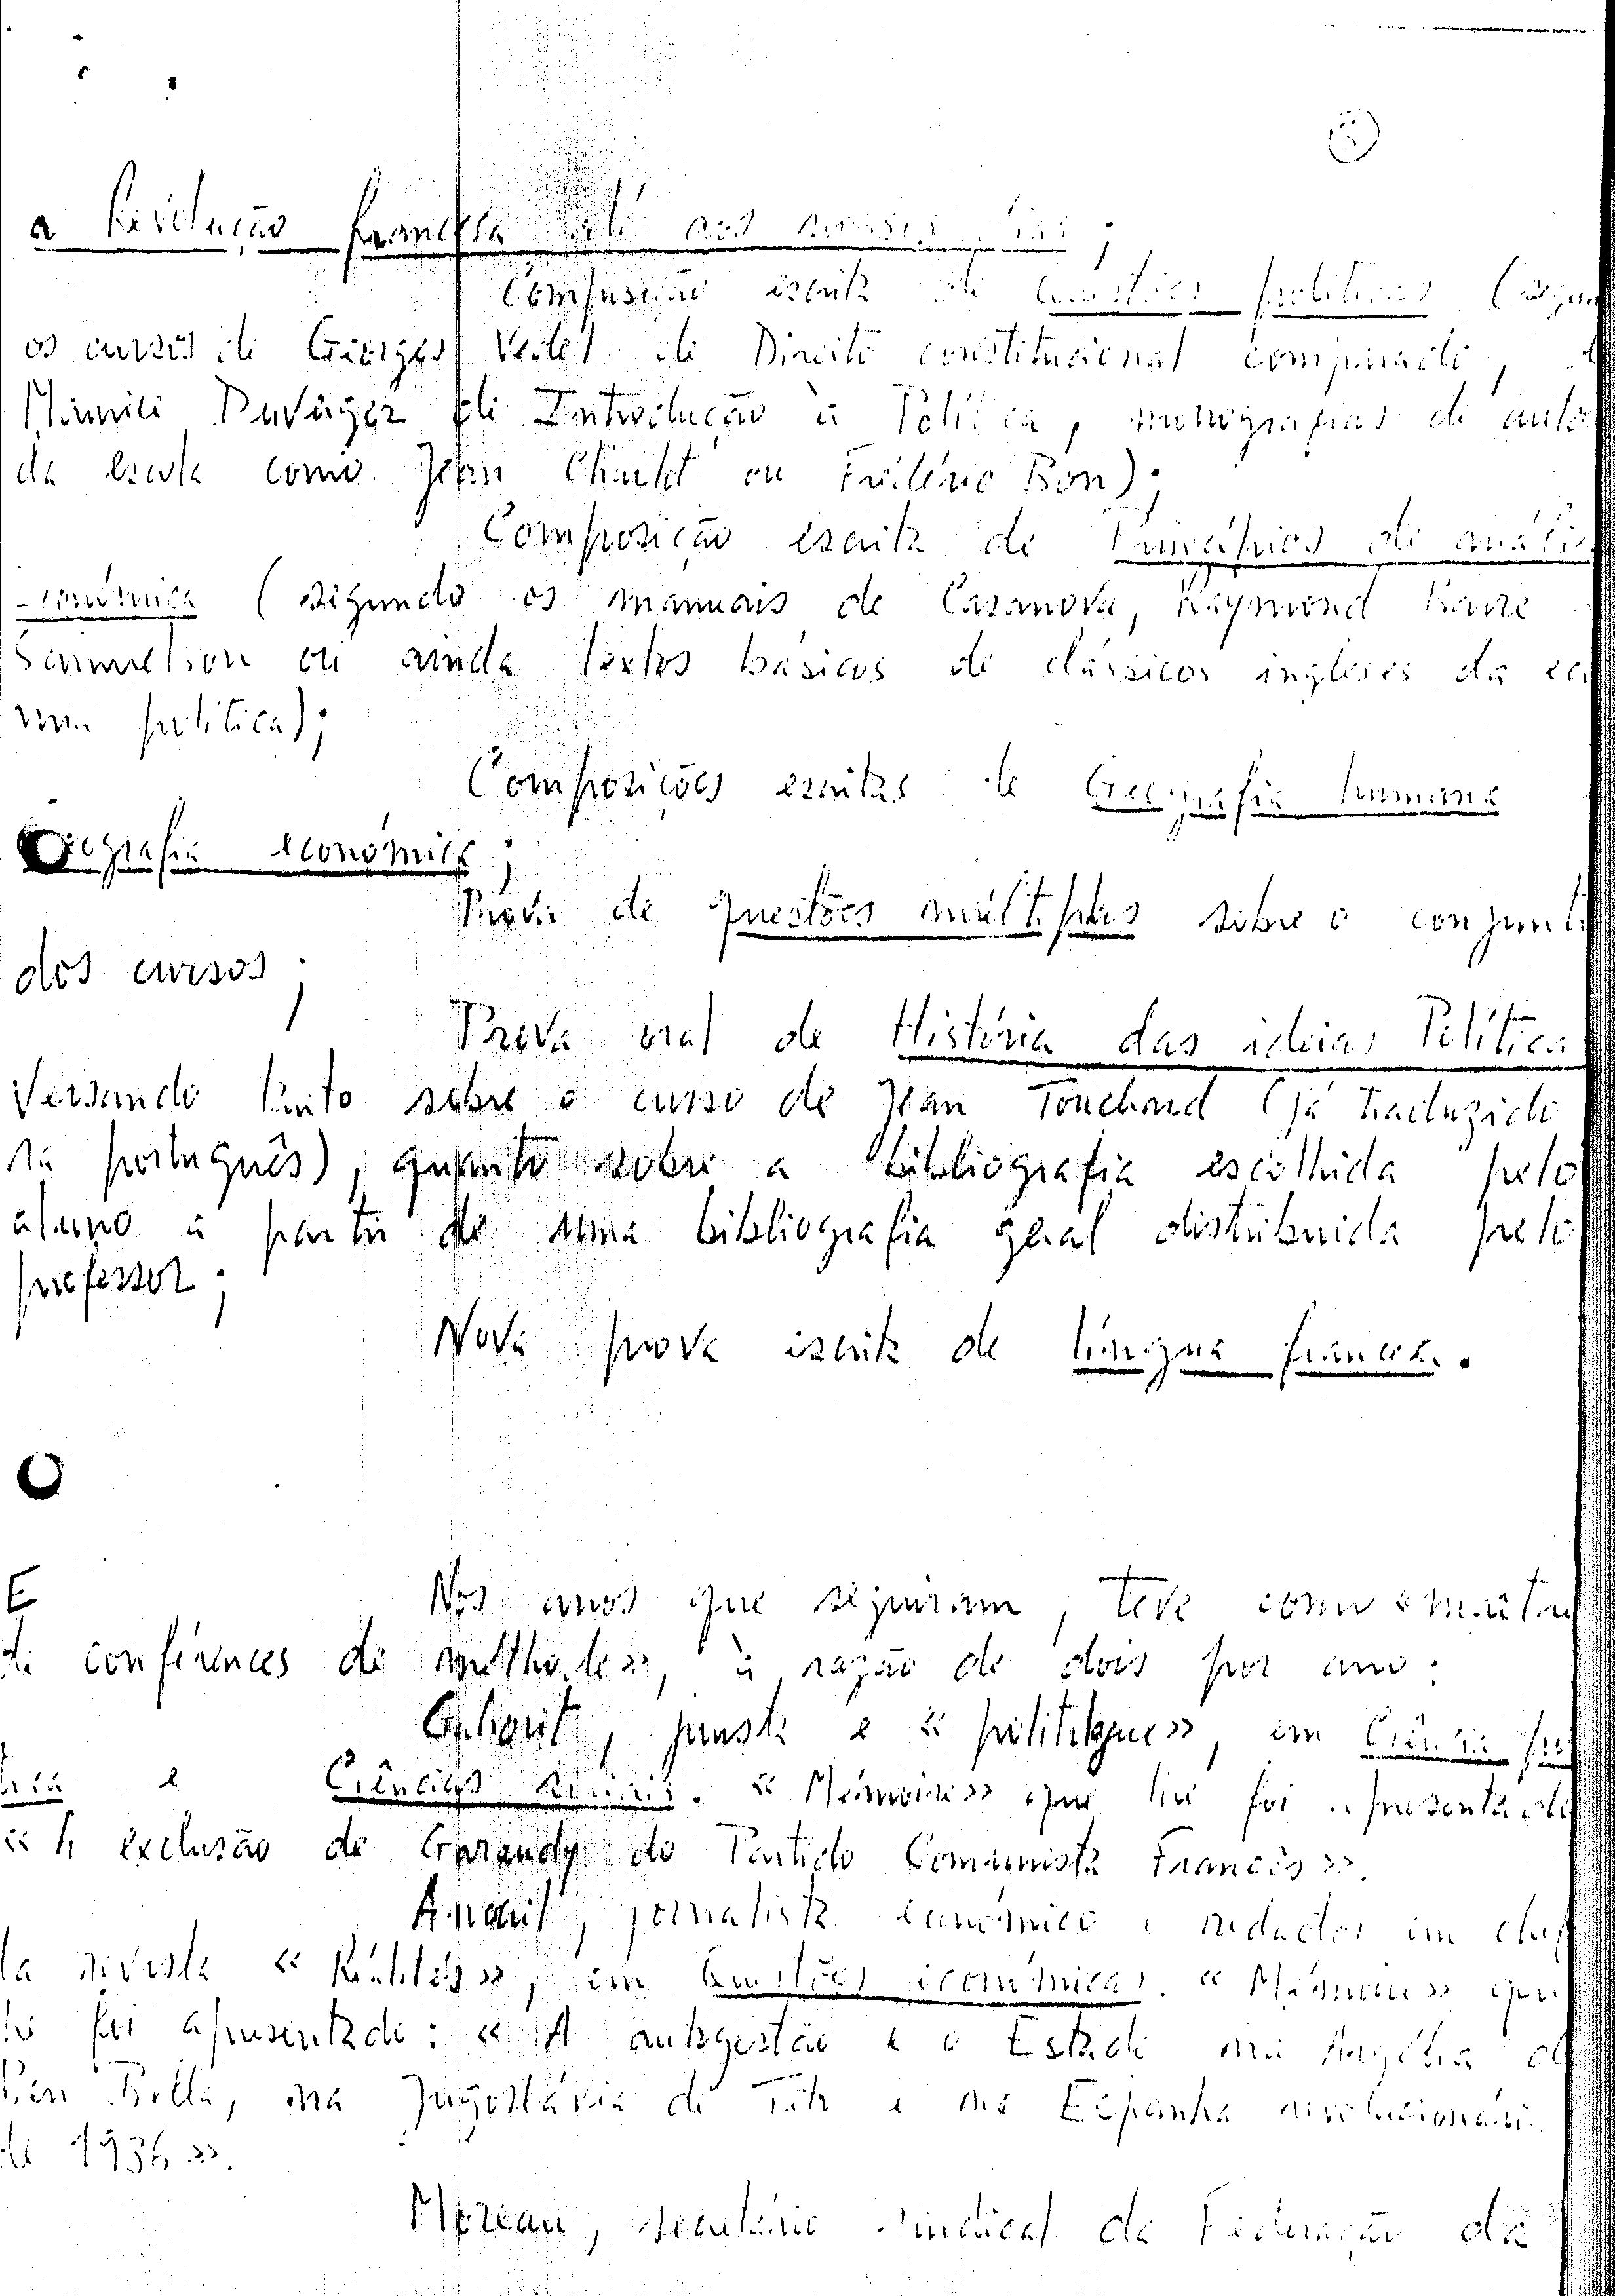 5
a Revolução francesa até aos nossos dias;
Composição escrita de Questões políticas (segun
os cursos de Georges Vedel de Direito constitucional comparado,
Maurice Duverger de Introdução à Política, monografias de auto
da escola como Jean Charlot ou Frédéric Bon);
Composição escrita de Princípios de análise
económica (segundo os manuais de Casanova, Raymond Barre
Samuelson ou ainda textos básicos de clássicos ingleses da eco
mia política);
Composições escritas de Geografia humana
Geografia económica;
Prova de questões múltiplas sobre o conjunto
dos cursos;
Prova oral de História das ideias Política
versando tanto sobre o curso de Jean Touchard (já traduzido
português), quanto sobre a bibliografia escolhida pelo
aluno a partir de uma bibliografia geral distribuida pelo
professor;
Nova prova escrita de língua francesa.
E
Nos anos que seguiram, teve como «maitre
de conférences de méthode», à razão de dois por ano:
jurista e « politólogue», em Ciência po
e Ciências sociais. « Mémoire» que lhe foi apresentado
« A exclusão de Garaudy do Partido Comunista Francês».
jornalista económico e redactor em chef
da revista « Réalités», em Questões económicas. « Mémoire» que
lhe foi apresentado: « A autogestão e o Estado na Argélia de
Ben Bella, na Jugoslávia de Tito e na Espanha revolucionári
de 1936 ».
Moreau, secretário sindical da Federação da